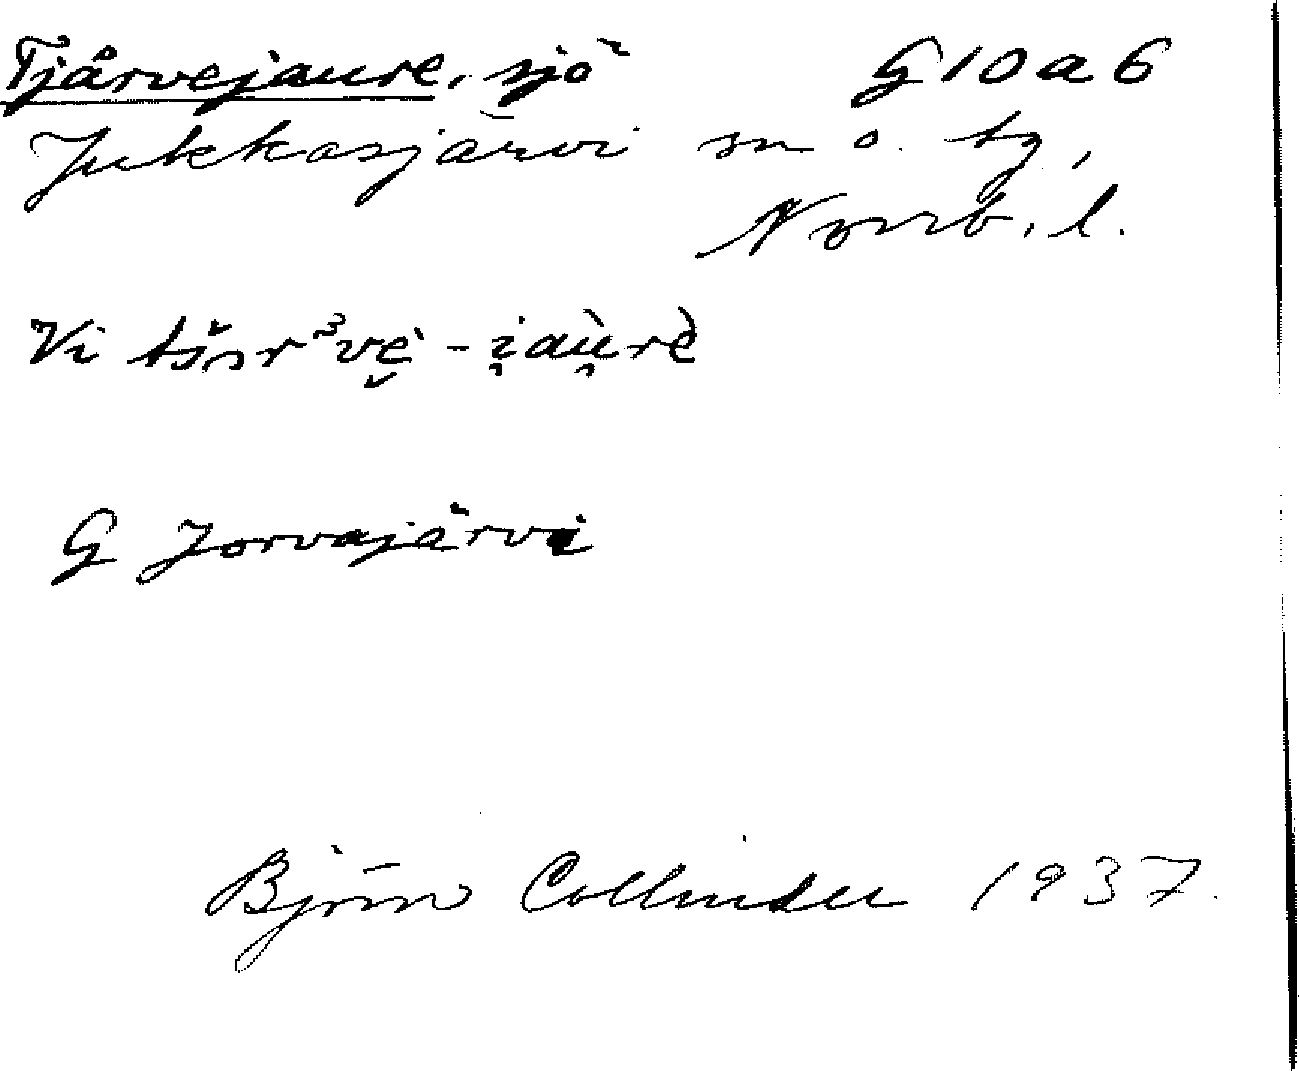 Tjårvejaure, sjö G10a6
Jukkasjärvi sn o. tg,
Norrb. l.
Vi
G Jorvajärvi
Björn Collinder 1937.